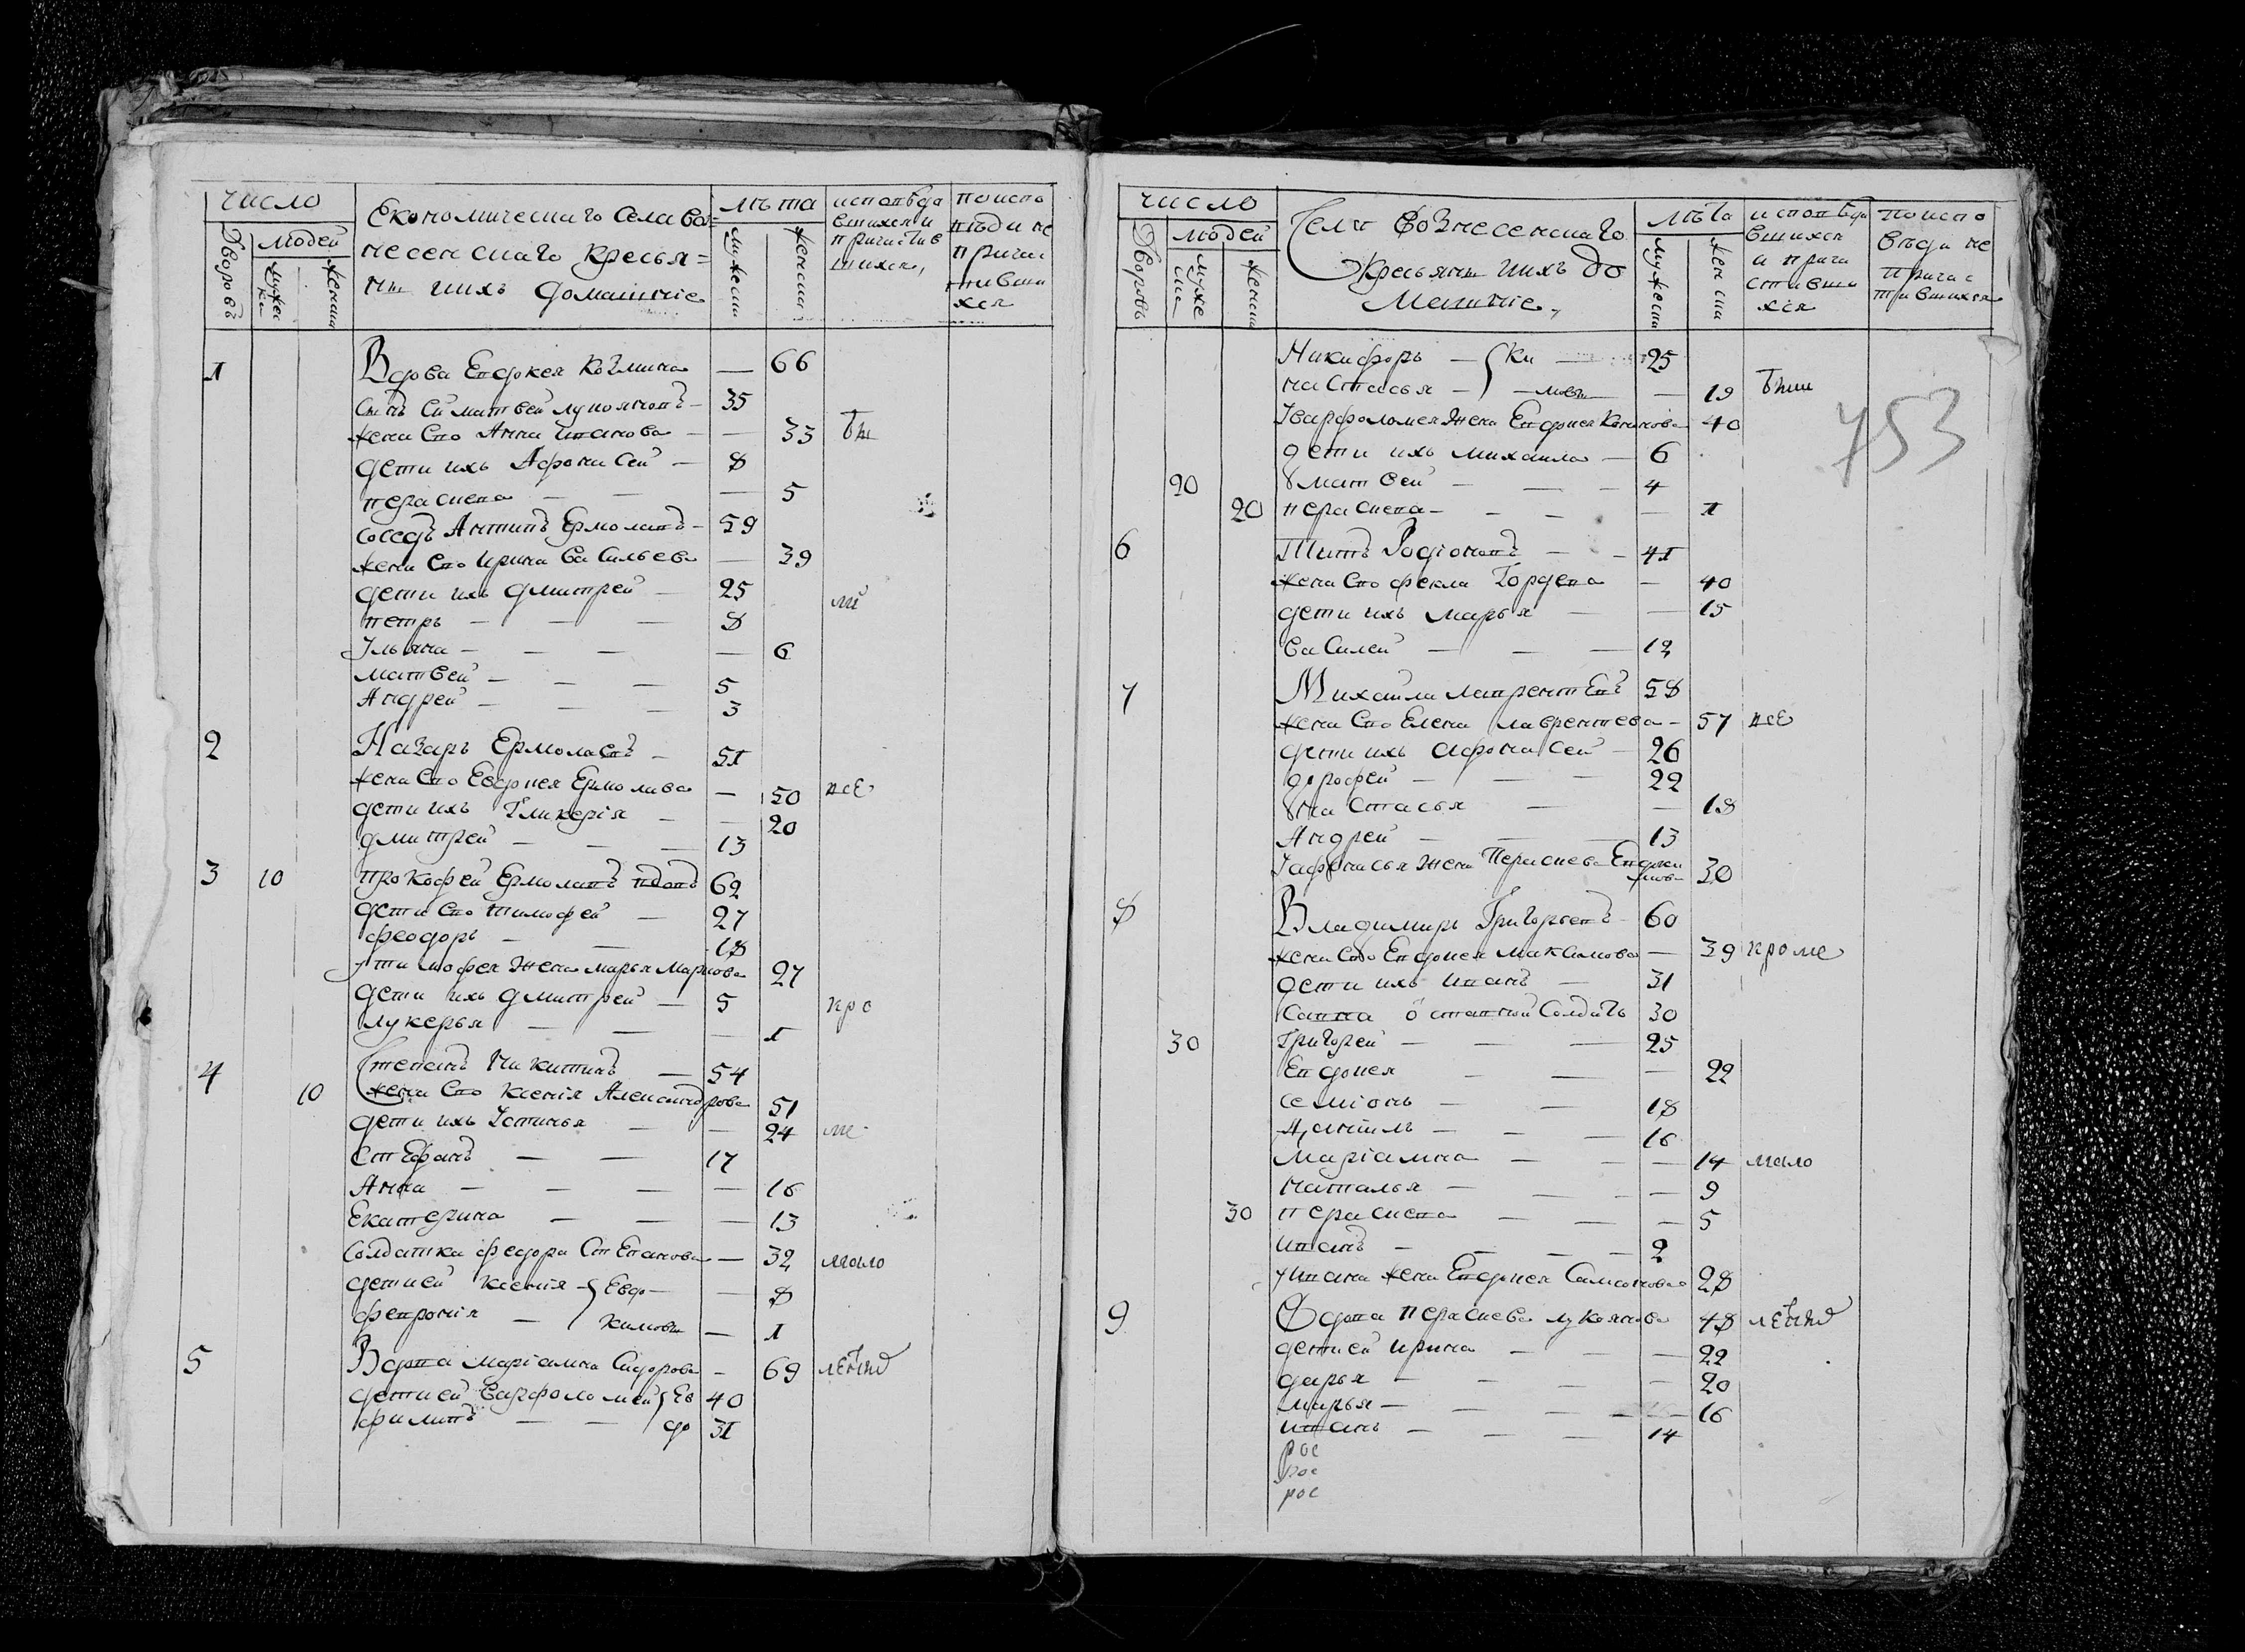 число
Економическаго села Воз=
несенскаго крестья=
не ихъ домашние
лѣта
исповѣда
вшихся и
причастив
шихся,
по испо
вѣди не
причас
тивши
хся
Дворовъ
людей
мужес
ка
женска
мужеска
женска
1 Вдова Евдокея Козмина — 66
Сынъ ей матвей лукояновъ — 35
жена Его Анна иванова — — 33 бы
дети ихъ Афонасей — 8
параскева — — — 5
соседъ Антипъ Ермолаевъ — 59
жена Его Ирина Васильева — 39
дети ихъ дмитрей — 25
петръ — — — 8
Ульяна — — — — 6
матвей — — — 5
Андрей — — — 3
2 Назаръ Ермолаевъ — 51
жена Его Евдокея Ермолаева — 50 всѣ
дети ихъ Гликерїя — — 20
дмитрей — — — 13
3 10 Прокофей Ермолаевъ вдовъ 62
дети Его тимофей — 27
феодоръ — — 18
У тимофея жена марья Маркова 27
дети ихъ дмитрей — 5 кро
лукерья — — — 1
4 Степанъ Никитинъ — 54
10 жена Его Ксенїя Александрова 51
дети ихъ Устинья — — 24 ме
Стефанъ — — 17
Анна — — — — 16
Екатерина — — — 13
Солдатка федора Степанова — 32 мало
дети ей Ксенїя — Евдо — — 8
феврония — кимовы — 1
5 Вдова марїамна Сидорова — 69 летныѣ
дети ей Варфоломей Ев 40
филипъ — — до 31
число
Села Вознесенскаго
крестьяне ихъ до
машние,
лѣта
исповѣда
вшихся
и прича
стивши
хся
по испо
вѣди не
причас
тившихся
Дворовъ
людей
муже
ска
женска
мужеска
женска
Никифоръ — ки — 25
настасья — — мовы — 19
У варфоломея жена Евдокея 40
753
дети ихъ михаила — 6
20 матвей — — — 4
20 параскева — — — — 1
6 Титъ Родїоновъ — — 41
жена Его фекла Гордеева — 40
дети ихъ марья — — 15
василей — — — 12
7 Михаила лаврентьевъ 58
жена Его Елена лаврентева — 57 всѣ
дети ихъ афонасей — 26
дорофей — — — 22
настасья — — 18
Андрей — — — 13
У афонасья жена Параскева 30
8 Владимиръ Григорьевъ — 60
жена Его Евдокея максимова — 39 кроме
дети ихъ иванъ — 31
Савва отставной солдатъ 30
30 Григорей — — — 25
Евдокея — — — 22
семїонъ — — 18
Данїилъ — — — 16
марїамна — — — 14 мало
наталья — — — 9
30 параскева — — — 5
иванъ — — — — 2
у ивана жена Евдокея Самсонова 28
9 Вдова параскева лукоянова 48 летныѣ
дети ей ирина — — — 22
дарья — — — — 20
марья — — — — — 16
иванъ — — — — 14
рос
рос
рос